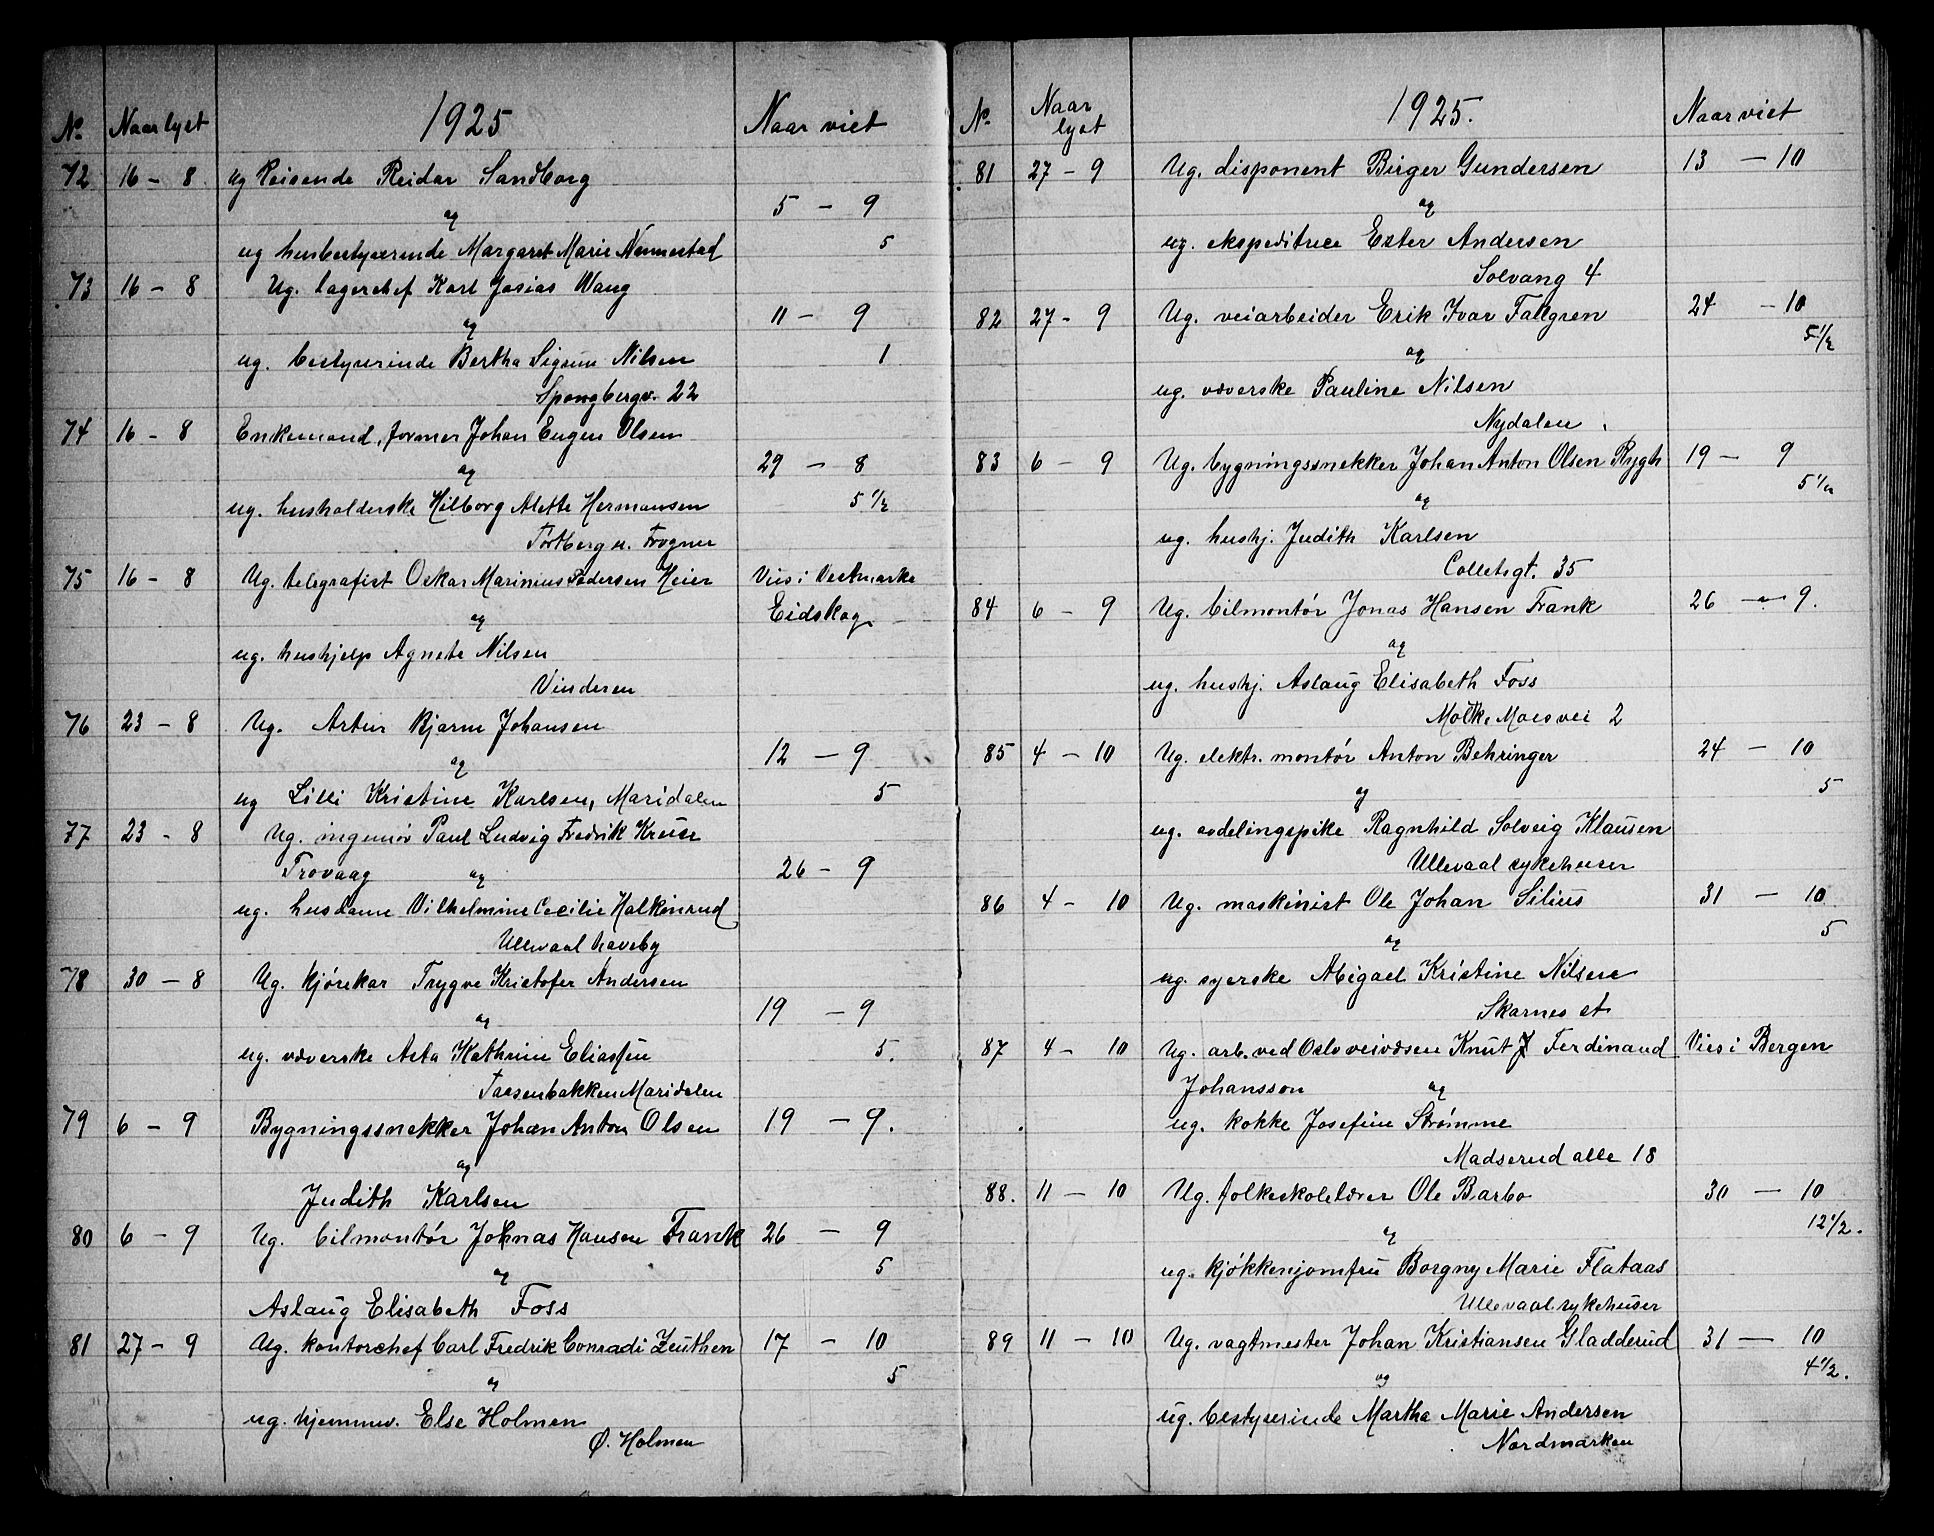 No Naar lyst 1925 Naar viet
72 16 - 8 ug Reisende Reidar Sandborg
og 5 - 9
ug husbestyrerinde Margaret Marie Nennestad 5
73 16 - 8 Ug. lagerchef Karl Josias Wang
og 11 - 9
ug. bestyrerinde Bertha Sigrun Nilsen 1
Spongbergv. 22
74 16 - 8 Enkemand, former Johan Eugen Olsen
og 29 - 8
ug. husholderske Hilborg Alette Hermansen 5 1/2
Tortberg n. Frogner
75 16 - 8 Ug. telegrafist Oskar Marinius Pedersen Heier Vies i Vestmarke
og Eidskog
ug. hushjelp Agnete Nilsen
Vinderen
76 23 - 8 Ug. Artur Bjarne Johansen
og 12 - 9
ug Lilli Kristine Karlsen, Maridalen 5
77 23 - 8 Ug. ingeniør Paul Ludvig Fredrik Kruse
Trovaag og 26 - 9
ug. husdame Vilhelmine Cecilie Halkinrud
Ullevaal haveby
78 30 - 8 Ug. kjørekar Trygve Kristofer Andersen
og 19 - 9
ug. væverske Asta Kathrine Eliassen 5.
Taasenbakken Maridalen
79 6 - 9 Bygningssnekker Johan Anton Olsen 19 - 9.
og
Judith Karlsen
80 6 - 9 Ug. bilmontør Johnas Hansen Frank 26 - 9
og 5
Aslaug Elisabeth Foss
81 27 - 9 Ug. kontorchef Carl Fredrik Conradi Zeuthen 17 - 10
og 5
ug. hjemmev. Else Holmen
Ø. Holmen
N. Naar lyst 1925. Naar viet
81 27 - 9 Ug. disponent Birger Gundersen 13 - 10
og
ug. ekspeditrice Ester Andersen
Solvang 4
82 27 - 9 Ug. veiarbeider Erik Ivar Fallgren 24 - 10
og 5 1/2
ug. væverske Pauline Nilsen
Nydalen
83 6 - 9 Ug. bygningssnekker Johan Anton Olsen Rygh 19 - 9
og 5 1/2
ug. hushj. Judith Karlsen
Colletsgt. 35
84 6 - 9 Ug. bilmontør Jonas Hansen Frank 26 - 9.
og
ug. hushj. Aslaug Elisabeth Foss
Moltke Moes vei 2
85 4 - 10 Ug. elektr. montør Anton Behringer 24 - 10
og 5
ug. avdelingspike Ragnhild Solveig Klausen
Ullevaal sykehuser
86 4 - 10 Ug. maskinist Ole Johan Silius 31 - 10
og 5
ug. syerske Abigael Kristine Nilsen
Skarnes st
87 4 - 10 Ug. arb. ved Oslo veivæsen Knut J Ferdinand Vies i Bergen
Johansson og
ug. kokke Josefine Strømme
Madserud alle 18
88. 11 - 10 Ug. folkeskolelærer Ole Barbo 30 - 10
og 12 1/2.
ug. kjøkkenjomfru Borgny Marie Flataas
Ullevaal sykehuser
89 11 - 10 Ug. vagtmester Johan Kristiansen Gladderud 31 - 10
og 4 1/2.
ug. bestyrerinde Martha Marie Andersen
Nordmarken